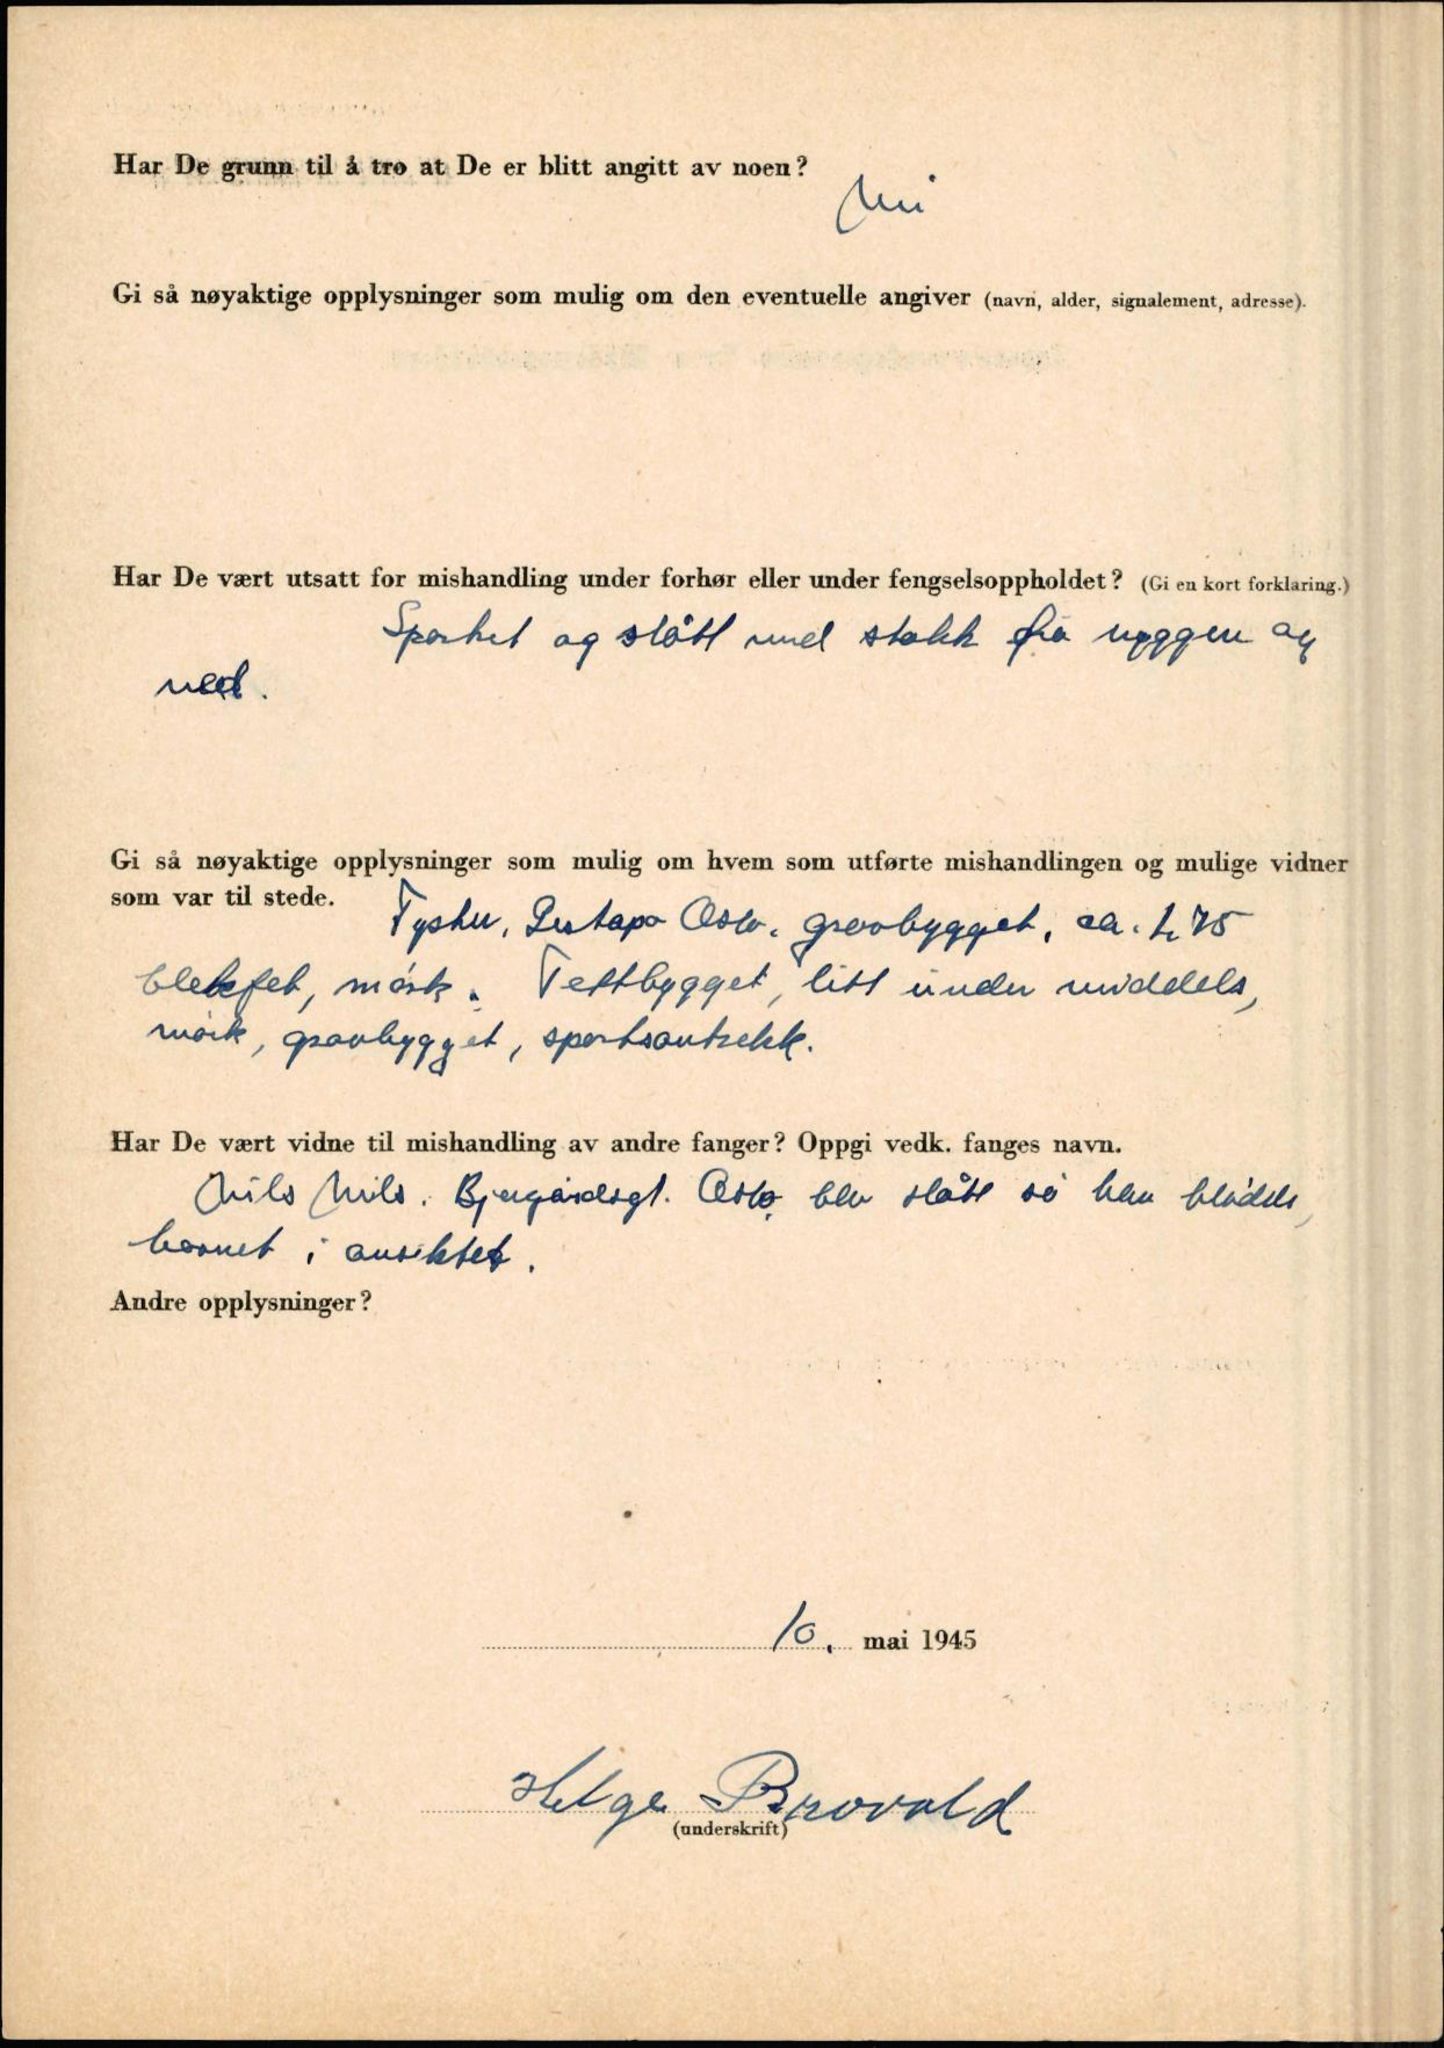 Har De grunn til å tro at De er blitt angitt av noen?
Nei
Gi så nøyaktige opplysninger som mulig om den eventuelle angiver (navn, alder, signalement, adresse).
Har De vært utsatt for mishandling under forhør eller under fengselsoppholdet? (Gi en kort forklaring.)
Sparket og slått med stokk fra ryggen og
ned.
Gi så nøyaktige opplysninger som mulig om hvem som utførte mishandlingen og mulige vidner
som var til stede.
Tysker, Gestapo Oslo. grovbygget, ca. 1,75
blekfet, mørk. Tettbygget, litt under middels,
mørk, grovbygget, sportsantrekk.
Har De vært vidne til mishandling av andre fanger? Oppgi vedk. fanges navn.
Nils Nils. Oslo, blev slått så han blødde,
hovnet i ansiktet.
Andre opplysninger?
10. mai 1945
Helge Brovold
(underskrift)